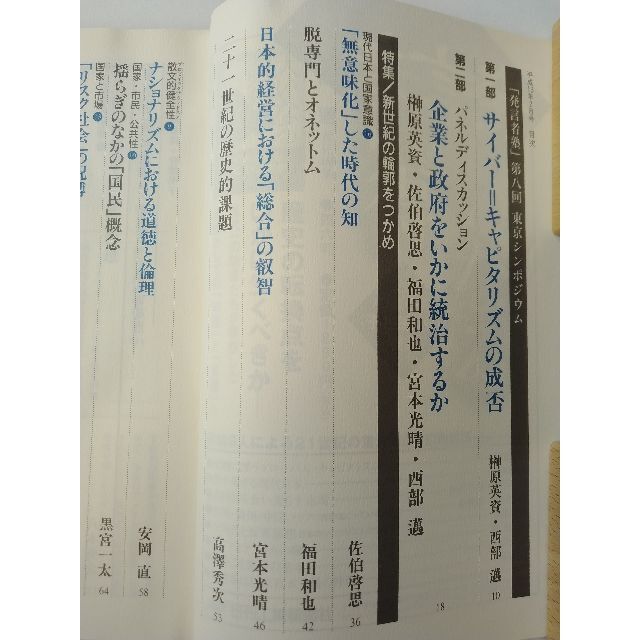 平成13年2月号 目次
「発言者塾」第八回 東京シンポジウム
第一部 サイバー＝キャピタリズムの成否 榊原英資・西部 邁 10
第二部 パネルディスカッション
企業と政府をいかに統治するか 18
榊原英資・佐伯啓思・福田和也・宮本光晴・西部 邁
特集／新世紀の輪郭をつかめ
現代日本と国家意識
「無意味化」した時代の知 佐伯啓思 36
脱専門とオネットム 福田和也 42
日本的経営における「総合」の叡智 宮本光晴 46
二十一世紀の歴史的課題 高澤秀次 53
散文的健全性
ナショナリズムにおける道徳と倫理 安岡 直 58
国家・市民・公共性
揺らぎのなかの「国民」概念 黒宮一太 64
国家と市場
「リスク社会」の